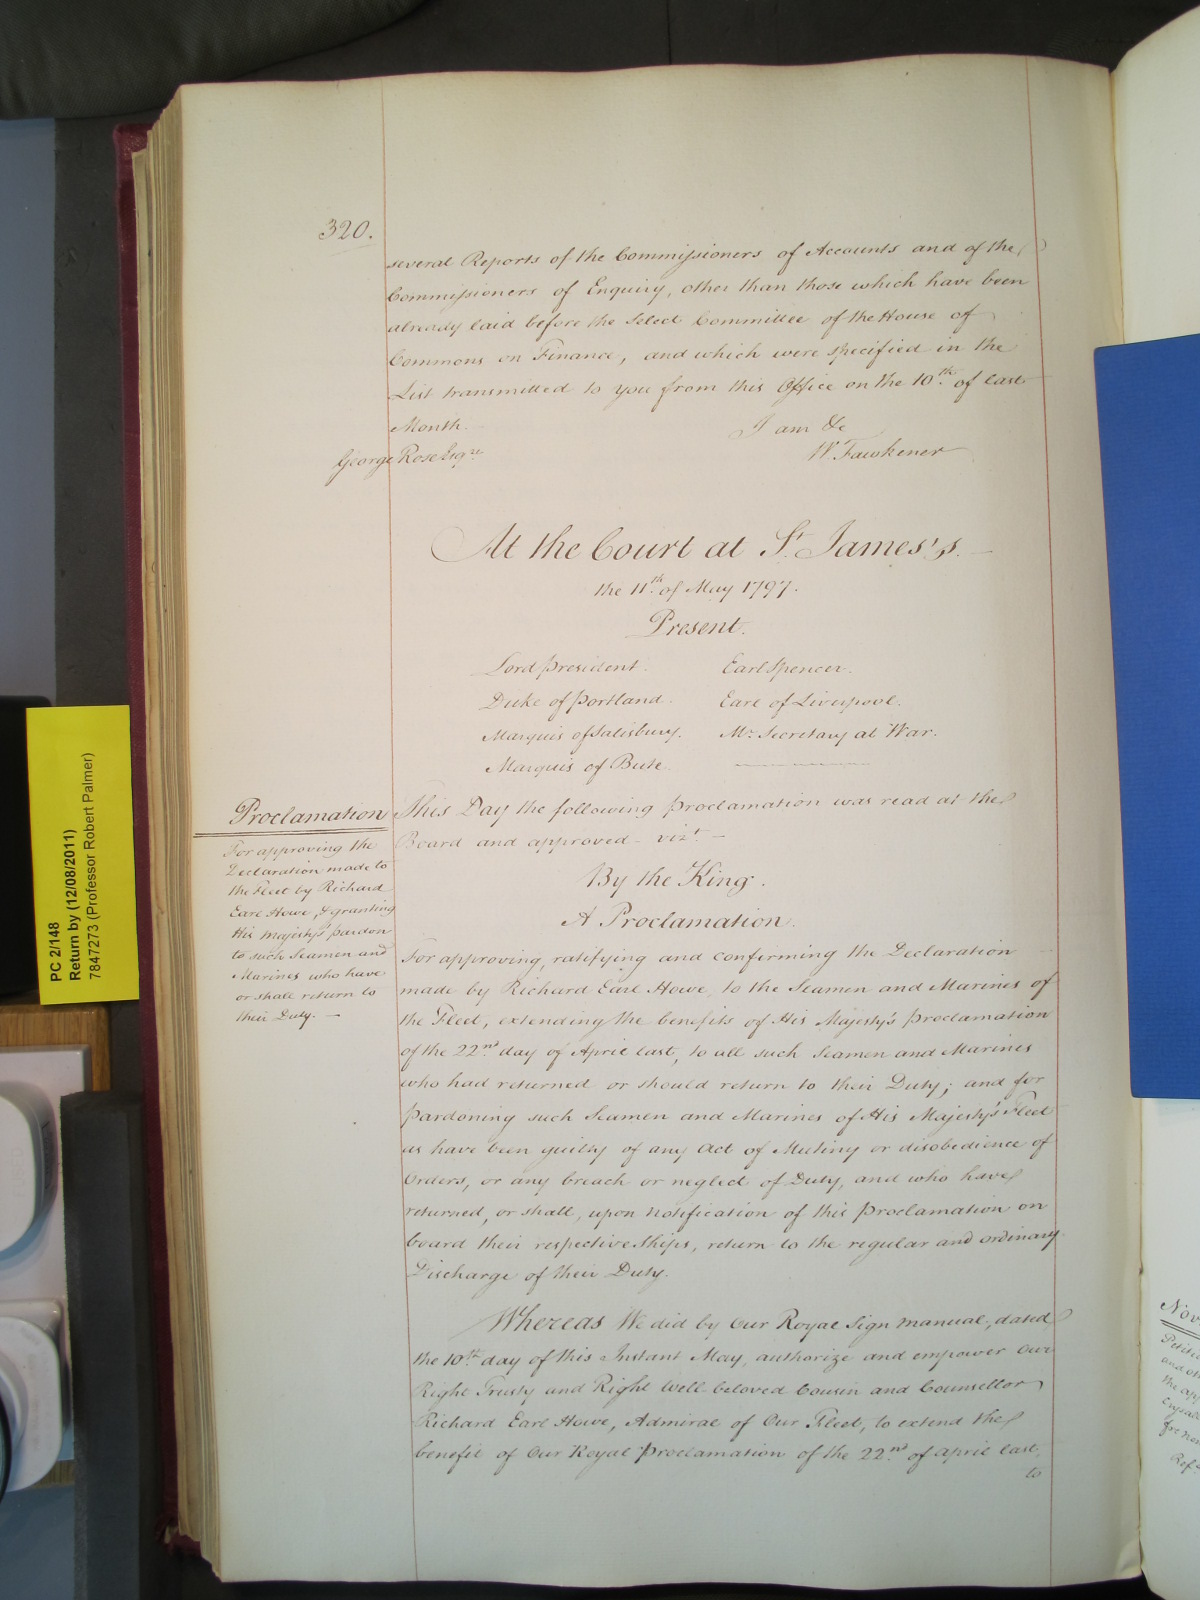 320.
several Reports of the Commissioners of Accounts and of the
Commissioners of Enquiry, other than those which have been
already laid before the Select Committee of the House of
Commons on Finance, and which were specified in the
List transmitted to you from this Office on the 10th. of last
Month.
I am &c
W. Fawkener
George Rose Esqre
At the Court at St. James's.
the 11th. of May 1797.
Present.
Lord President.
Earl Spencer.
Duke of Portland.
Earl of Liverpool.
Marquis of Salisbury.
Mr. Secretary at War.
Marquis of Bute
Proclamation
For approving the
Declaration made to
the Fleet by Richard
Earl Howe, & granting
His Majesty's pardon
to such Seamen and
Marines who have
or shall return to
their Duty. —
This Day the following Proclamation was read at the
Board and approved - vizt. —
By the King.
A Proclamation.
For approving, ratifying and confirming the Declaration
made by Richard Earl Howe, to the Seamen and Marines of
the Fleet, extending the benefits of His Majesty's Proclamation
of the 22nd. day of April last, to all such Seamen and Marines
who had returned or should return to their Duty; and for
pardoning such Seamen and Marines of His Majesty's Fleet
as have been guilty of any Act of Mutiny or disobedience of
Orders, or any breach or neglect of Duty, and who have
returned, or shall, upon notification of this Proclamation on
board their respective Ships, return to the regular and ordinary
Discharge of their Duty.
Whereas We did by Our Royal Sign manual, dated
the 10th. day of this Instant May, authorize and empower Our
Right Trusty and Right Well-beloved Cousin and Counsellor
Richard Earl Howe, Admiral of Our Fleet, to extend the
benefit of Our Royal Proclamation of the 22nd. of April last,
to
PC 2/148
Return by (12/08/2011)
7847273 (Professor Robert Palmer)
Nov
and
the
for
Ref